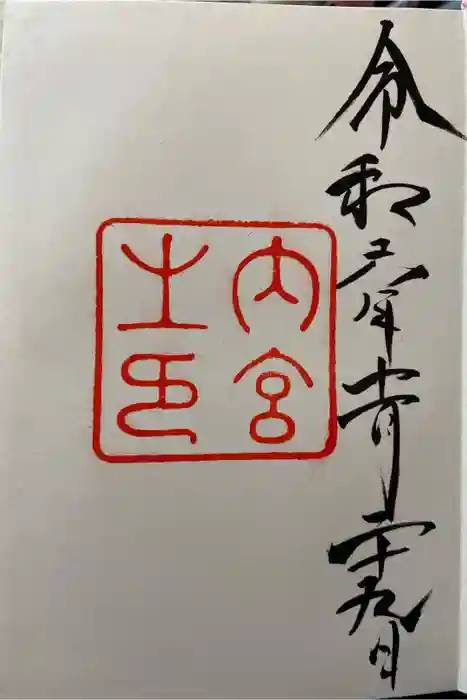 令和六年 月二十九日
内宮
之印